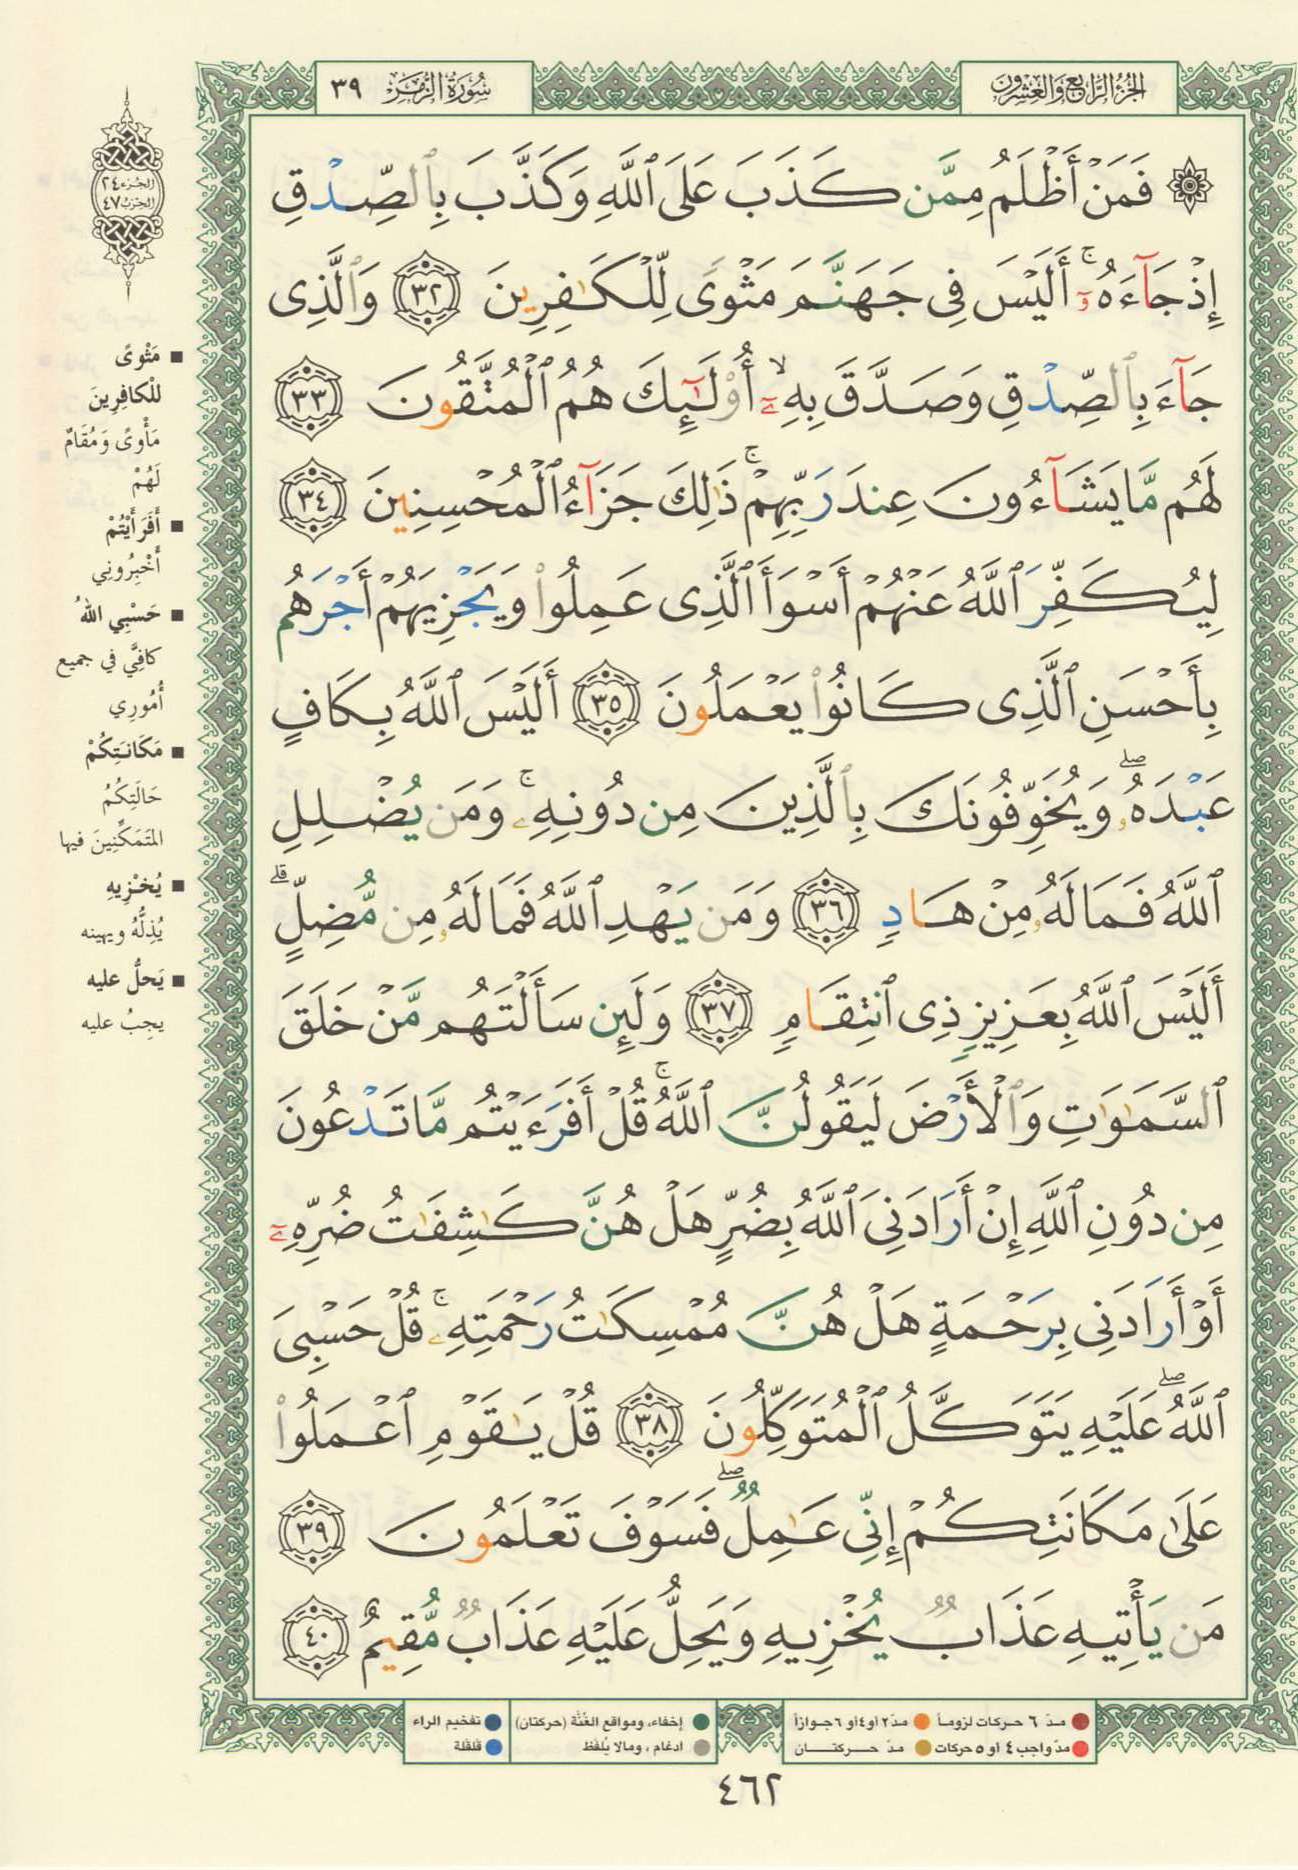 سُورَةُ الزُّمَرِ ٣٩
الجُزْءُ الرَّابِعُ وَالعِشْرُونَ
۞ فَمَنْ أَظْلَمُ مِمَّن كَذَبَ عَلَى ٱللَّهِ وَكَذَّبَ بِٱلصِّدْقِ
إِذْ جَآءَهُۥٓ ۚ أَلَيْسَ فِى جَهَنَّمَ مَثْوًى لِّلْكَـٰفِرِينَ ٣٢ وَٱلَّذِى
جَآءَ بِٱلصِّدْقِ وَصَدَّقَ بِهِۦٓ ۙ أُو۟لَـٰٓئِكَ هُمُ ٱلْمُتَّقُونَ ٣٣
لَهُم مَّا يَشَآءُونَ عِندَ رَبِّهِمْ ۚ ذَٰلِكَ جَزَآءُ ٱلْمُحْسِنِينَ ٣٤
لِيُكَفِّرَ ٱللَّهُ عَنْهُمْ أَسْوَأَ ٱلَّذِى عَمِلُوا۟ وَيَجْزِيَهُمْ أَجْرَهُم
بِأَحْسَنِ ٱلَّذِى كَانُوا۟ يَعْمَلُونَ ٣٥ أَلَيْسَ ٱللَّهُ بِكَافٍ
عَبْدَهُۥ ۖ وَيُخَوِّفُونَكَ بِٱلَّذِينَ مِن دُونِهِۦ ۚ وَمَن يُضْلِلِ
ٱللَّهُ فَمَا لَهُۥ مِنْ هَادٍ ٣٦ وَمَن يَهْدِ ٱللَّهُ فَمَا لَهُۥ مِن مُّضِلٍّ ۗ
أَلَيْسَ ٱللَّهُ بِعَزِيزٍ ذِى ٱنتِقَامٍ ٣٧ وَلَئِن سَأَلْتَهُم مَّنْ خَلَقَ
ٱلسَّمَـٰوَٰتِ وَٱلْأَرْضَ لَيَقُولُنَّ ٱللَّهُ ۚ قُلْ أَفَرَءَيْتُم مَّا تَدْعُونَ
مِن دُونِ ٱللَّهِ إِنْ أَرَادَنِىَ ٱللَّهُ بِضُرٍّ هَلْ هُنَّ كَـٰشِفَـٰتُ ضُرِّهِۦٓ
أَوْ أَرَادَنِى بِرَحْمَةٍ هَلْ هُنَّ مُمْسِكَـٰتُ رَحْمَتِهِۦ ۚ قُلْ حَسْبِىَ
ٱللَّهُ ۖ عَلَيْهِ يَتَوَكَّلُ ٱلْمُتَوَكِّلُونَ ٣٨ قُلْ يَـٰقَوْمِ ٱعْمَلُوا۟
عَلَىٰ مَكَانَتِكُمْ إِنِّى عَـٰمِلٌ ۖ فَسَوْفَ تَعْلَمُونَ ٣٩
مَن يَأْتِيهِ عَذَابٌ يُخْزِيهِ وَيَحِلُّ عَلَيْهِ عَذَابٌ مُّقِيمٌ ٤٠
الجزء ٢٤
الحزب ٤٧
■ مَثْوًى
للْكافِرِينَ
مَأْوىً وَمُقَامٌ
لَهُمْ
■ أَفَرَأَيْتُمْ
أَخْبِرُونِي
■ حَسْبِي اللهُ
كافِيَّ في جميع
أُمُورِي
■ مَكَانَتِكُمْ
حَالَتِكُمُ
المتَمَكِّنِينَ فيها
■ يُخْزِيهِ
يُذِلُّهُ ويهينه
■ يَحِلُّ عليه
يجِبُ عليه
مدّ ٦ حركات لزوماً
مدّ ٢ أو ٤ أو ٦ جوازاً
مدّ واجب ٤ أو ٥ حركات
مدّ حركتان
إخفاء، ومواقع الغُنَّة (حركتان)
ادغام، ومالا يُلفَظ
تفخيم الراء
قلقلة
٤٦٢